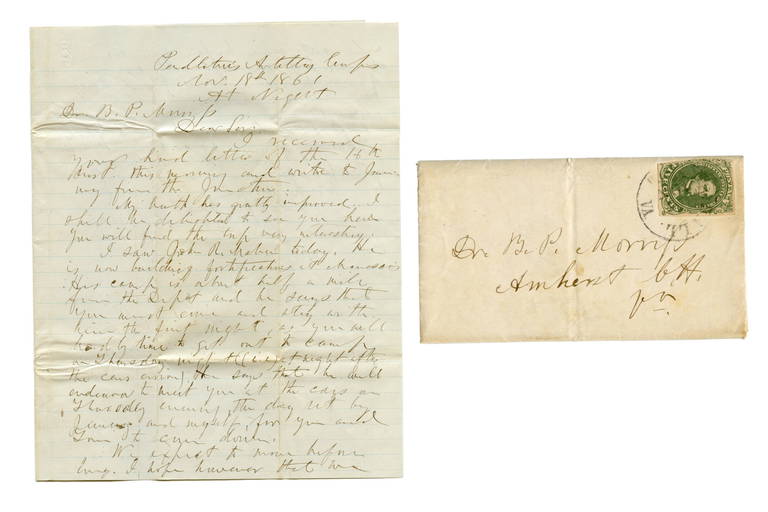 Artillery Camp
Nov. 18th 1861
At Night
Dr. B. P. Morriss
Dear Sir, I received
your kind letter of the 14th
inst. this morning and write to
you from the
My health has greatly improved. I
shall be delighted to see you here
you will find the very interesting.
I saw today. He
is now building fortifications at Manassas
His camp is about half a mile
from the Depot and he says that
you must come and stay with
him the first night, as you will
hardly have time to get out to camp
on Thursday night (at night after
the cars arrive) He says that he will
endeavor to meet you at the cars on
Thursday evening the day set by
and myself, for you and
to come down.
We expect to move before
long. I hope however that we
Dr. B. P. Morriss
Amherst C.H.
Va.
VA